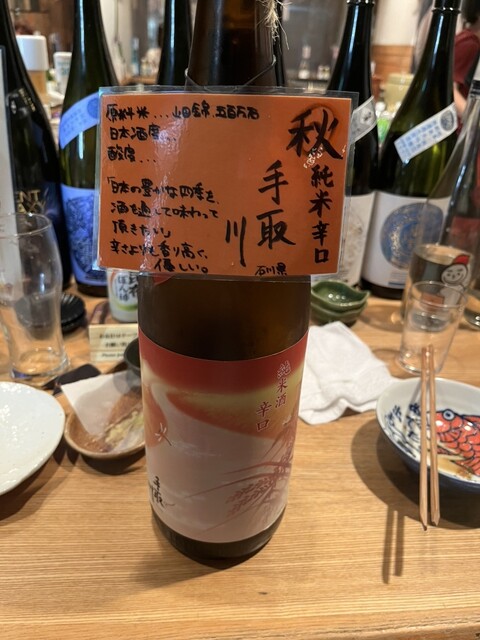 原料米...山田錦、五百万石
日本酒度...
酸度...
日本の豊かな四季を、
酒を通して味わって
頂きたい。
辛さよりも香り高く、
優しい。
秋
純米辛口
手取川
石川県
純米酒
辛口
手取川